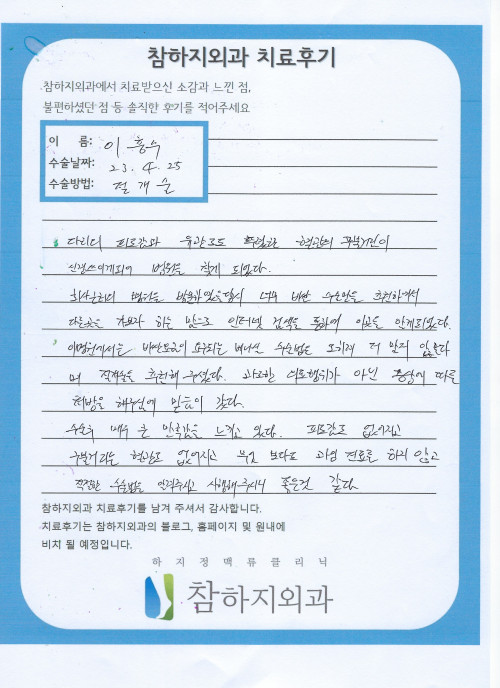 참하지외과 치료후기
참하지외과에서 치료받으신 소감과 느낀 점,
불편하셨던 점 등 솔직한 후기를 적어주세요
이 름: 이흥수
수술날짜: 23. 4. 25
수술방법: 절개술
다리의 피로감과 육안으로도 특별한 혈관의 구불거림이
신경쓰이게되어 병원을 찾게 되었다.
회사근처 병원을 방문하였을당시 너무 비싼 수술만을 추천하여서
다른곳을 가보자 하는 맘으로 인터넷 검색을 통하여 이곳을 알게되었다.
이병원에서는 비싼요금이 요구되는 레이저 수술법은 오히려 더 맞지 않는다
며 절개술을 추천해주셨다. 과도한 의료행위가 아닌 증상에 따른
처방을 해주심에 믿음이 갔다.
수술후 매우 큰 만족감을 느끼고 있다. 피로감도 없어지고
구불거리는 혈관도 없어지고 무엇 보다도 과잉 진료를 하지 않고
적절한 수술법을 알려주시고 시행해주시니 좋은것 같다.
참하지외과 치료후기를 남겨 주셔서 감사합니다.
치료후기는 참하지외과의 블로그, 홈페이지 및 원내에
비치 될 예정입니다.
하지정맥류클리닉
참하지외과